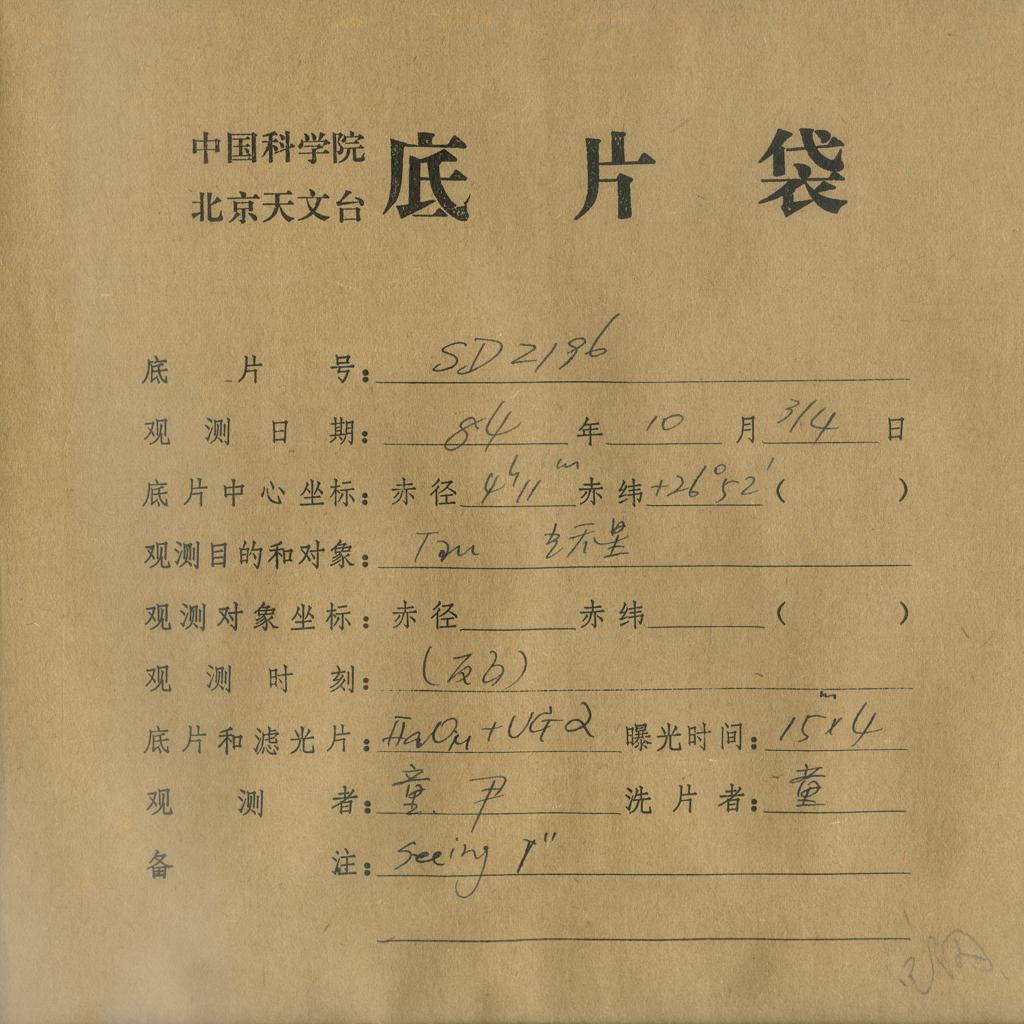 中国科学院
北京天文台
底片袋
底片号: SD2196
观测日期: 84年10月3/4日
底片中心坐标: 赤径4ʰ11ᵐ赤纬+26°52′( )
观测目的和对象: Tau
观测对象坐标: 赤径 赤纬 ( )
观测时刻:
底片和滤光片: IIaO+UG2 曝光时间: 15ᵐx4
观测者: 童. 尹 洗片者: 童
备注: Seeing 1″